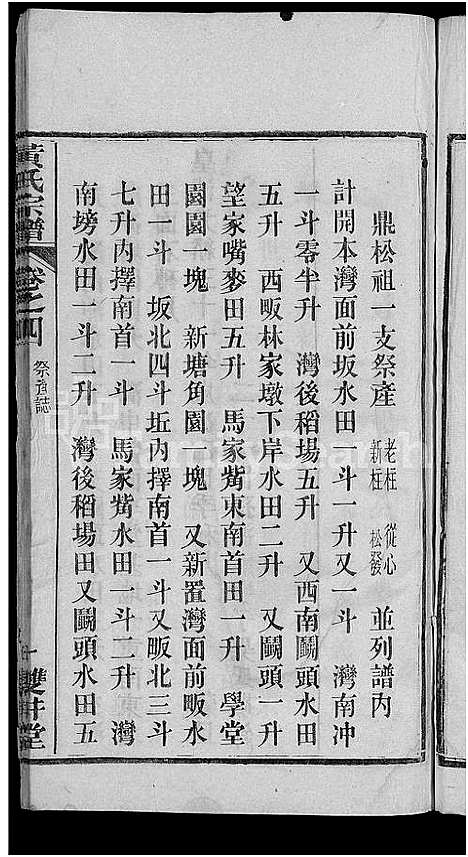 鼎松祖一支祭產 老柱 從心 新柱 松發 並列譜內
計開本灣面前坂水田一斗一升又一斗 灣南冲
一斗零半升 灣後稻場五升 又西南鬭頭水田
五升 西畈林家墩下岸水田二升 又鬭頭一升
望家嘴麥田五升 馬家觜東南首田一升 學堂
園園一塊 新塘角園一塊 又新置灣面前畈水
田一斗 坂北四斗坵內擇南首一斗又畈北三斗
七升內擇南首一斗 馬家觜水田一斗二升 灣
南塝水田一斗二升 灣後稻場田又鬭頭水田五
黃氏宗譜 卷之四 祭產誌 雙井堂